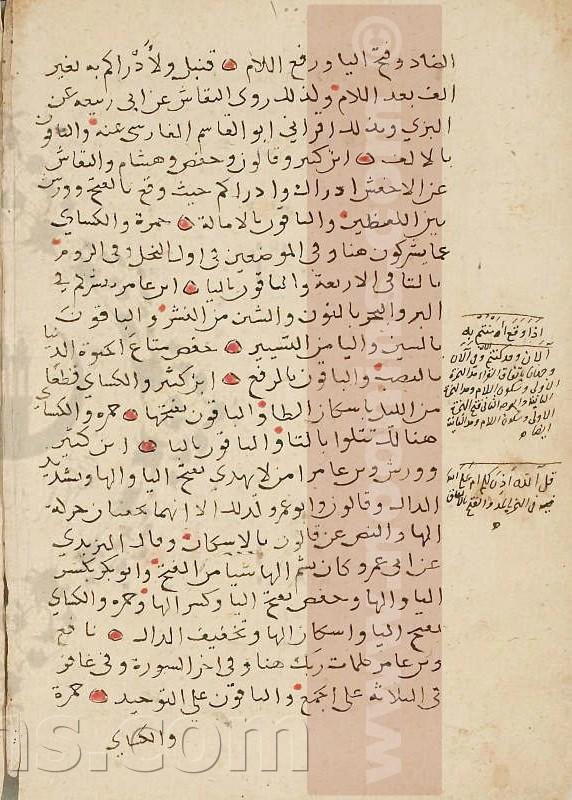 الضاد وفتح اليا ورفع اللام قنبل ولأدراكم به بغير
الف بعد اللام ولذلك روى النقاش عن ابى ربيعه عن
البزي وبذلك اقراني ابو القاسم الفارسى عنه والباقون
بالالف ابن كثير وقالون وحفص وهشام والنقاش
عن الاخفش ادراك وادراكم حيث وقع بالفتح وورش
بين اللفظين والباقون بالامالة حمزة والكساي
عما يشركون هنا وفى الموضعين فى اول النحل وفى الروم
بالتا فى الاربعة والباقون باليا ابن عامر ينشركم فى
البر والبحر بالنون والشين من النشر والباقون
بالسين واليا من التسيير حفص متاع الحيوة الدنيا
بالنصب والباقون بالرفع ابن كثير والكساي قطعا
من الليل باسكان الطا والباقون بفتحها حمزه والكساي
هنالك تتلوا بالتا والباقون بالبا ابن كثير
وورش وبن عامر امن لا يهدي بفتح اليا والها وتشديد
الدال وقالون وابو عمرو كذلك الا انهما يخفيان حركة
الها والنص عن قالون بالاسكان وقال اليزيدي
عن ابى عمرو وكان يشم الها شيا من الفتح وابو بكر بكسر
اليا والها وحفص بفتح اليا وكسر الها وحمزه والكساي
بفتح اليا واسكان الها وتخفيف الدال نافع
وبن عامر كلمات ربك هنا وفى اخر السورة وفى غافر
فى الثلاثة على الجمع والباقون على التوحيد حمزة
والكساي
اذا وقع امنتم به
قل آلله اذن لكم ام على الله